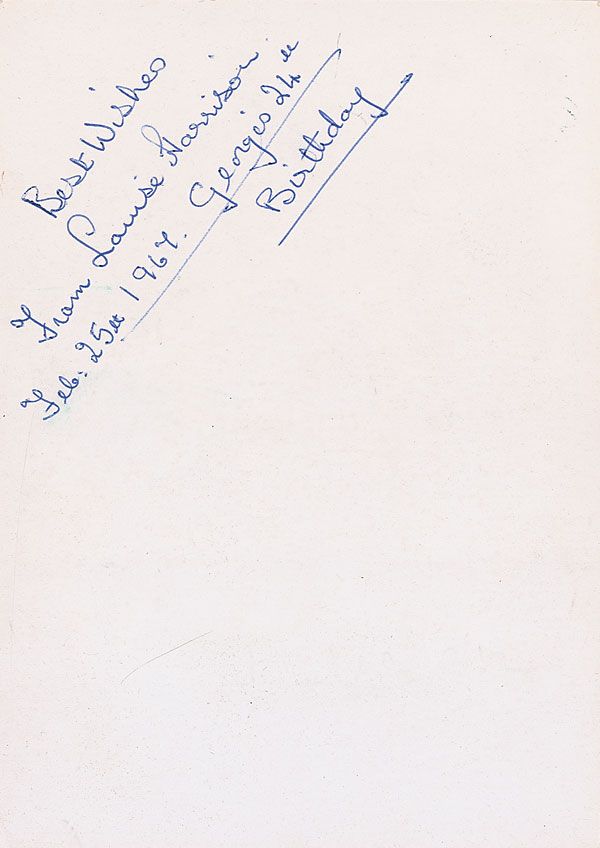 Best Wishes
From Louise Harrison.
Feb: 25th 1967. George's 24th
Birthday